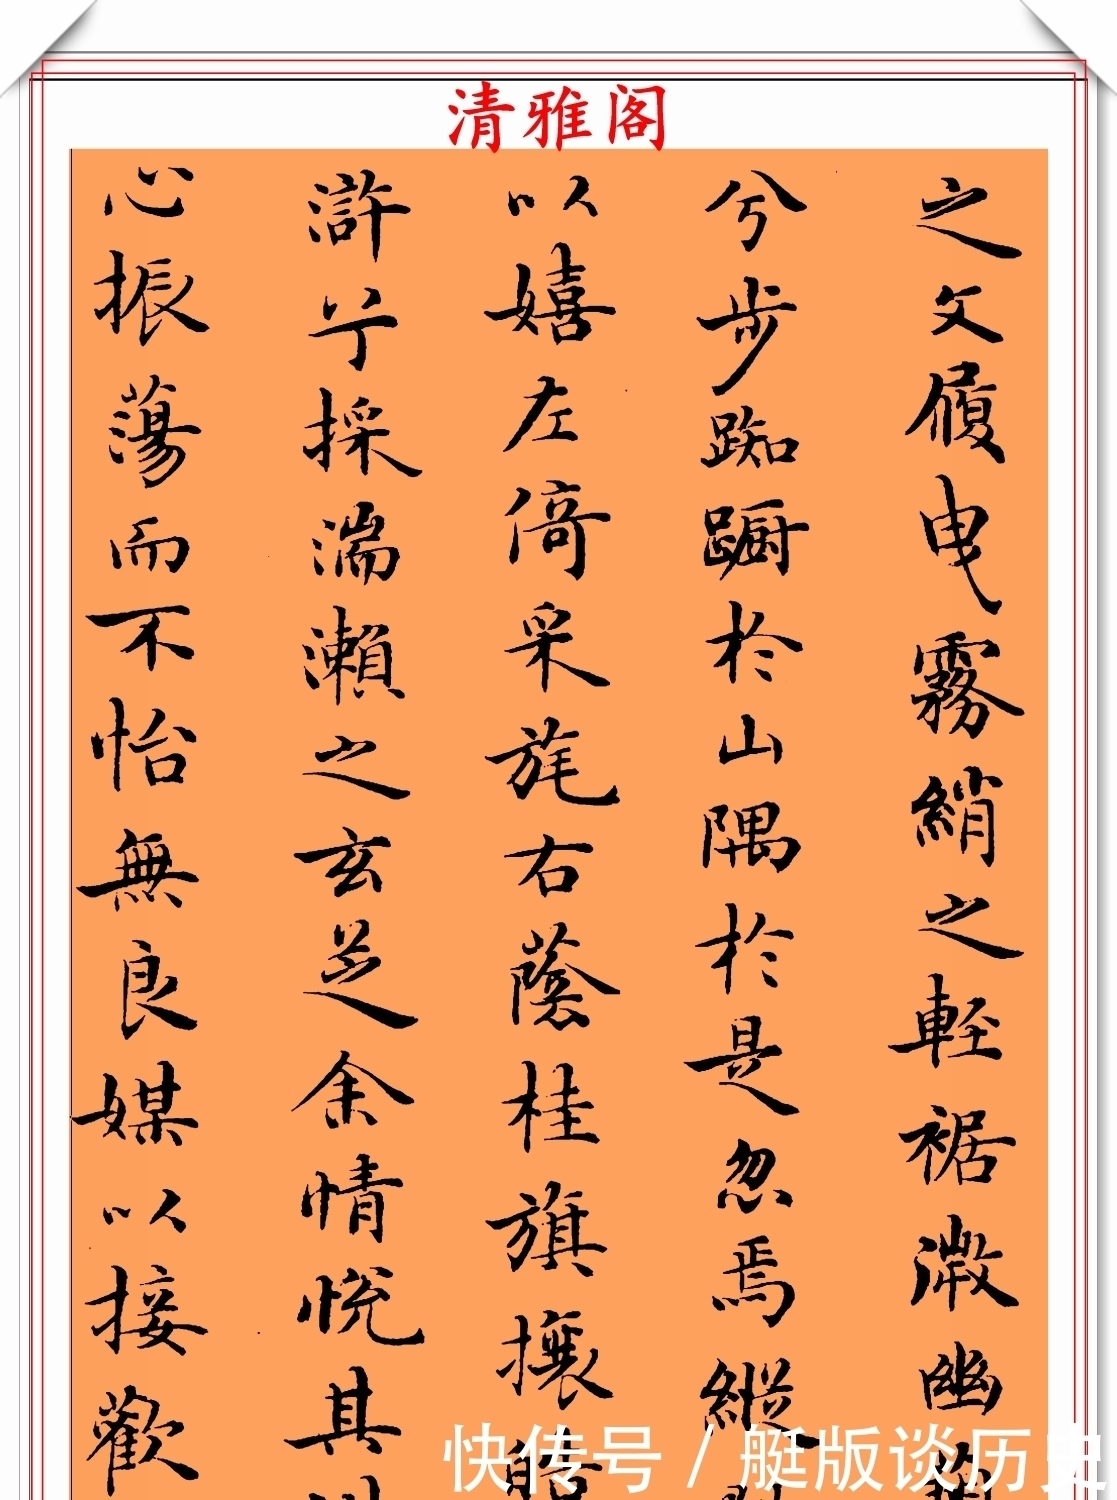 清雅阁
之文履曳霧綃之輕裾微幽
兮步踟蹰於山隅於是忽焉縱
以嬉左倚采旄右蔭桂旗攘皓
滸兮採湍瀨之玄芝余情悅其
心振蕩而不怡無良媒以接歡
快传号/艇版谈历史